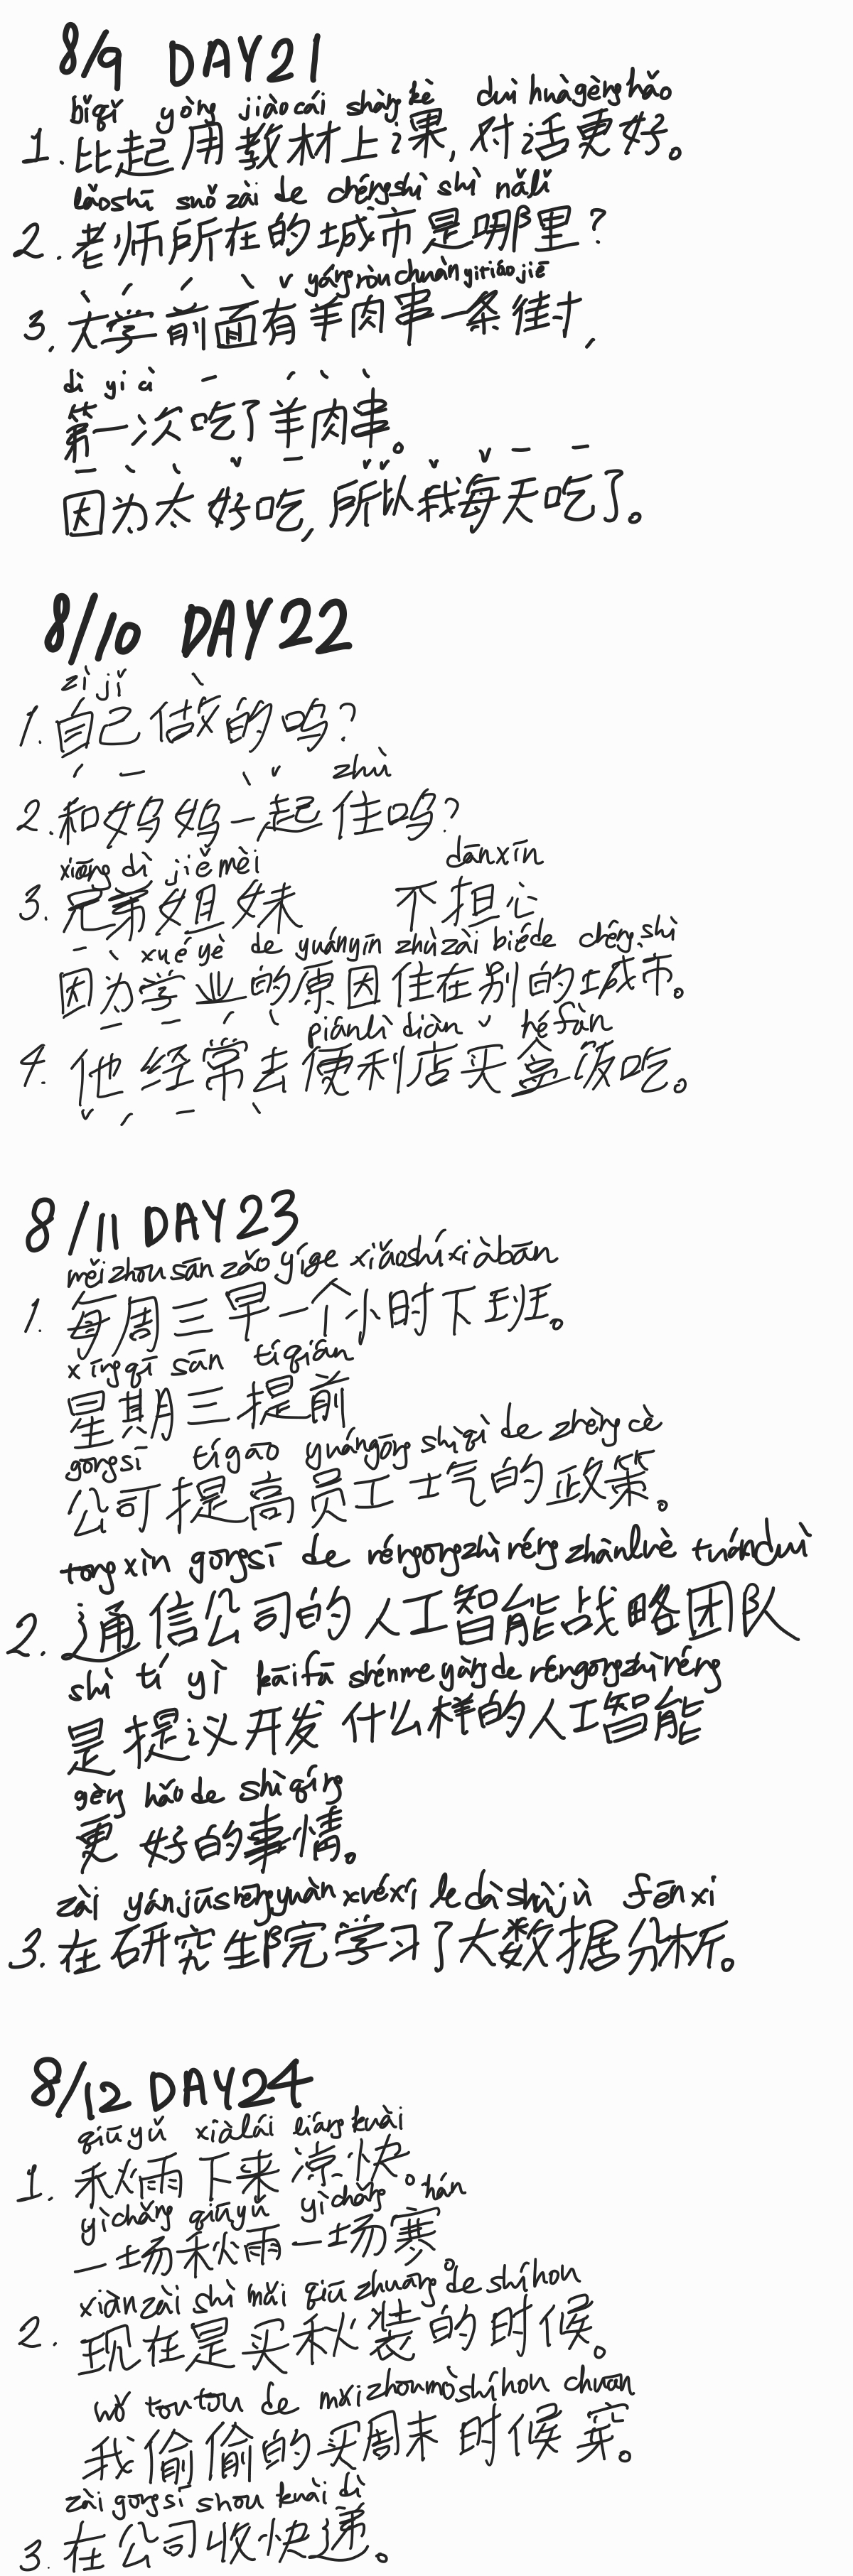 8/9 DAY21
bǐqǐ yòng jiàocái shàng kè duì huà gèng hǎo
1. 比起用教材上课, 对话更好。
lǎoshī suǒ zài de chéngshì shì nǎlǐ
2. 老师所在的城市是哪里?
yángròuchuàn yītiáojiē
3. 大学前面有羊肉串一条街,
dì yī cì
第一次吃了羊肉串。
因为太好吃, 所以我每天吃了。
8/10 DAY22
zì jǐ
1. 自己做的吗?
zhù
2. 和妈妈一起住吗?
xiōng dì jiě mèi dānxīn
3. 兄弟姐妹 不担心
xué yè de yuányīn zhùzài biéde chéng shì
因为学业的原因住在别的城市。
piánlì diàn hé fàn
4. 他经常去便利店买盒饭吃。
měi zhōu sān zǎo yíge xiǎoshí xiàbān
8/11 DAY23
1. 每周三早一个小时下班。
xīngqī sān tíqián
星期三提前
gōngsī tígāo yuángōng shìqì de zhèng cè
公司提高员工士气的政策。
tōng xìn gōngsī de réngōngzhì néng zhànlüè tuánduì
2. 通信公司的人工智能战略团队
shì tí yì kāifā shénme yàng de réngōngzhìnéng
是提议开发什么样的人工智能
gèng hǎo de shì qíng
更好的事情。
zài yánjiūshēngyuàn xuéxí le dà shùjù fēnxi
3. 在研究生院学习了大数据分析。
8/12 DAY24
qiūyǔ xiàlái liángkuài
1. 秋雨下来凉快。
yìchǎng qiūyǔ yìchǎng hán
一场秋雨一场寒。
xiànzài shì mǎi qiū zhuāng de shíhou
2. 现在是买秋装的时候。
wǒ toutou de mǎi zhōumò shíhou chuān
我偷偷的买周末时候穿。
zài gōngsī shōu kuài dì
3. 在公司收快递。